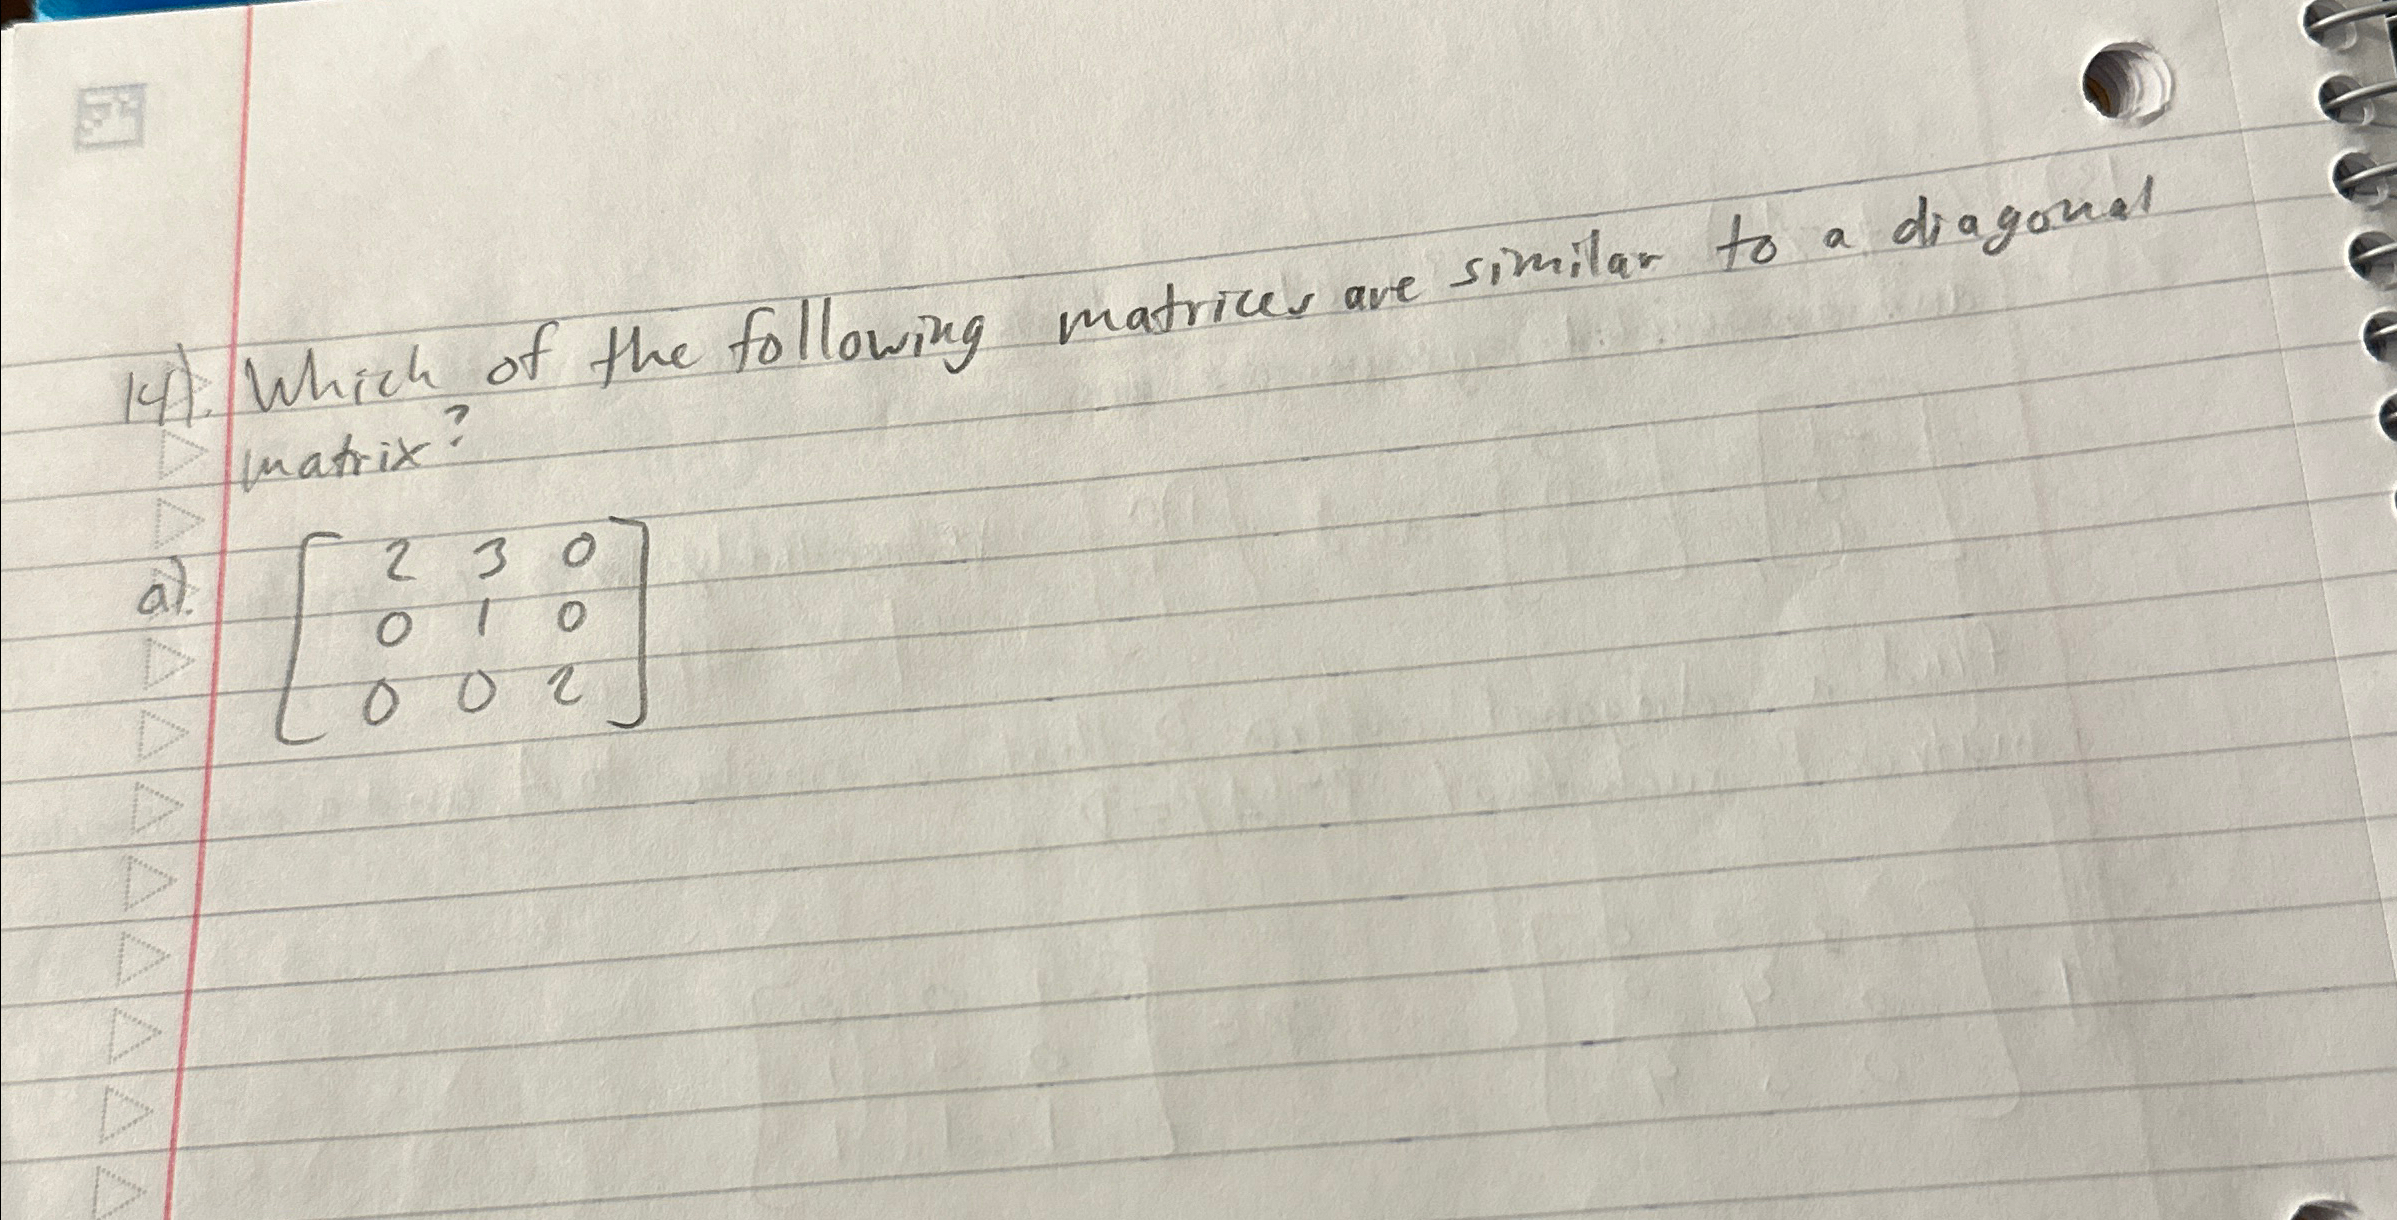 14). Which of the following matrices are similar to a diagonal
matrix?
a). [ 2 3 0
0 1 0
0 0 2 ]